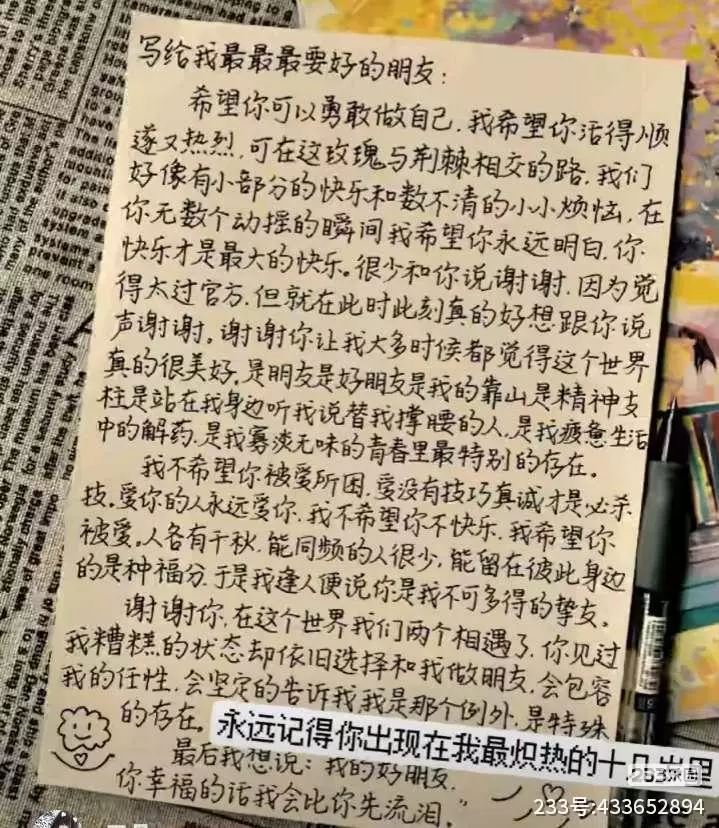 写给我最最最要好的朋友：
希望你可以勇敢做自己.我希望你活得顺
遂又热烈,可在这玫瑰与荆棘相交的路,我们
好像有小部分的快乐和数不清的小小烦恼,在
你无数个动摇的瞬间我希望你永远明白,你
快乐才是最大的快乐。很少和你说谢谢.因为觉
得太过官方.但就在此时此刻真的好想跟你说
声谢谢。谢谢你让我大多时候都觉得这个世界
真的很美好.是朋友是好朋友是我的靠山是精神支
柱是站在我身边听我说替我撑腰的人.是我疲惫生活
中的解药.是我寡淡无味的青春里最特别的存在。
我不希望你被爱所困,爱没有技巧真诚才是必杀
技。爱你的人永远爱你.我不希望你不快乐.我希望你
被爱。人各有千秋.能同频的人很少,能留在彼此身边
的是种福分.于是我逢人便说你是我不可多得的挚友。
谢谢你.在这个世界我们两个相遇了.你见过
我糟糕的状态却依旧选择和我做朋友.会包容
我的任性.会坚定的告诉我我是那个例外.是特殊
的存在。
永远记得你出现在我最炽热的十几岁里
最后我想说：我的好朋友.
你幸福的话我会比你先流泪。”
233乐园
233号:433652894